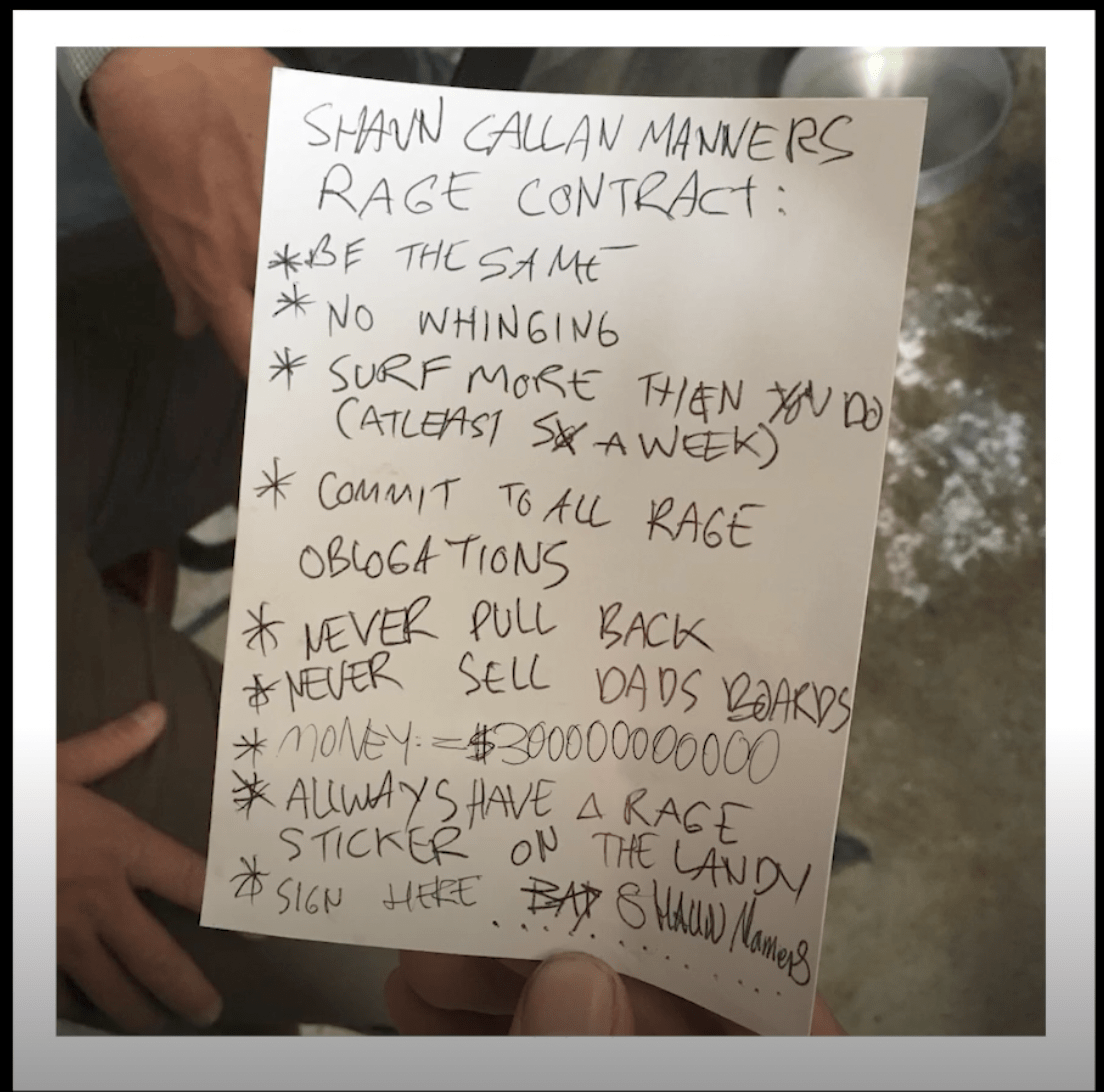 SHAUN CALLAN MANNERS
RAGE CONTRACT:
* BE THE SAME
* NO WHINGING
* SURF MORE THEN YOU DO
(ATLEAST 5X A WEEK)
* COMMIT TO ALL RAGE
OBLOGATIONS
* NEVER PULL BACK
* NEVER SELL DADS BOARDS
* MONEY:=$300000000000
* ALLWAYS HAVE A RAGE
STICKER ON THE LANDY
* SIGN HERE SHAUN Namers